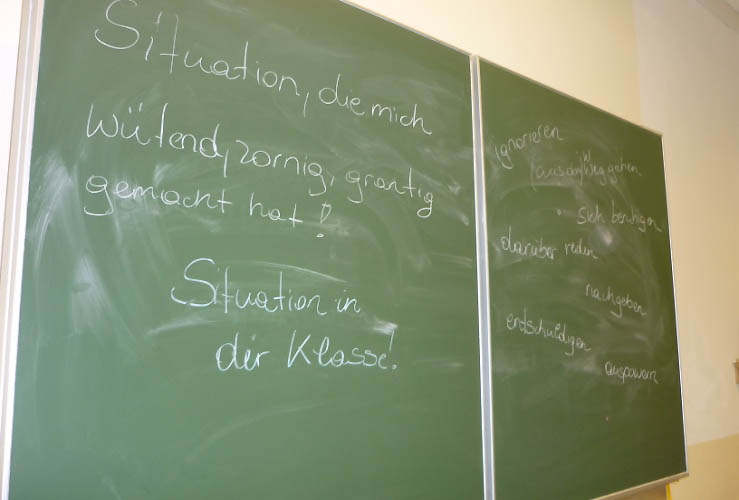 Situation, die mich
wütend, zornig, grantig
gemacht hat!
Situation in
der Klasse!
ignorieren
weggehen
sich beruhigen
darüber reden
nachgeben
entschuldigen
auspowern